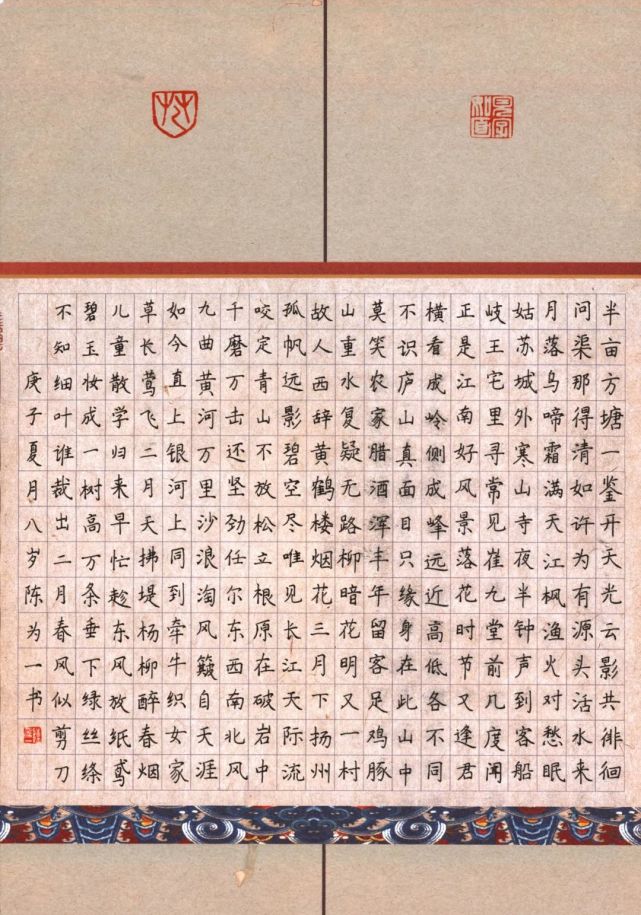 半亩方塘一鉴开天光云影共徘徊
问渠那得清如许为有源头活水来
月落乌啼霜满天江枫渔火对愁眠
姑苏城外寒山寺夜半钟声到客船
岐王宅里寻常见崔九堂前几度闻
正是江南好风景落花时节又逢君
横看成岭侧成峰远近高低各不同
不识庐山真面目只缘身在此山中
莫笑农家腊酒浑丰年留客足鸡豚
山重水复疑无路柳暗花明又一村
故人西辞黄鹤楼烟花三月下扬州
孤帆远影碧空尽唯见长江天际流
咬定青山不放松立根原在破岩中
千磨万击还坚劲任尔东西南北风
九曲黄河万里沙浪淘风簸自天涯
如今直上银河上同到牵牛织女家
草长莺飞二月天拂堤杨柳醉春烟
儿童散学归来早忙趁东风放纸鸢
碧玉妆成一树高万条垂下绿丝绦
不知细叶谁裁出二月春风似剪刀
庚子夏月八岁陈为一书